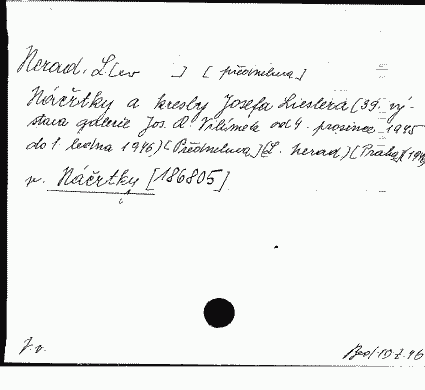 Nerad, L[ev ] [předmluva]
Náčrtky a kresby Josefa Lieslera (39. vý-
stava galerie Jos. R. Vilímek od 4. prosince 1945
do 1. ledna 1946) (Předmluva) (L. Nerad) (Praha)(1945)
v. Náčrtky [186805]
J.v.